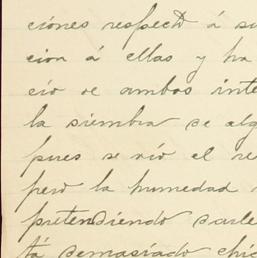 ciones respecto á su
cion á ellas y ha
cio de ambos inte
la siembra de alg
pues se vío el re
pero la humedad
pretendiendo darle
tá demasiado chic